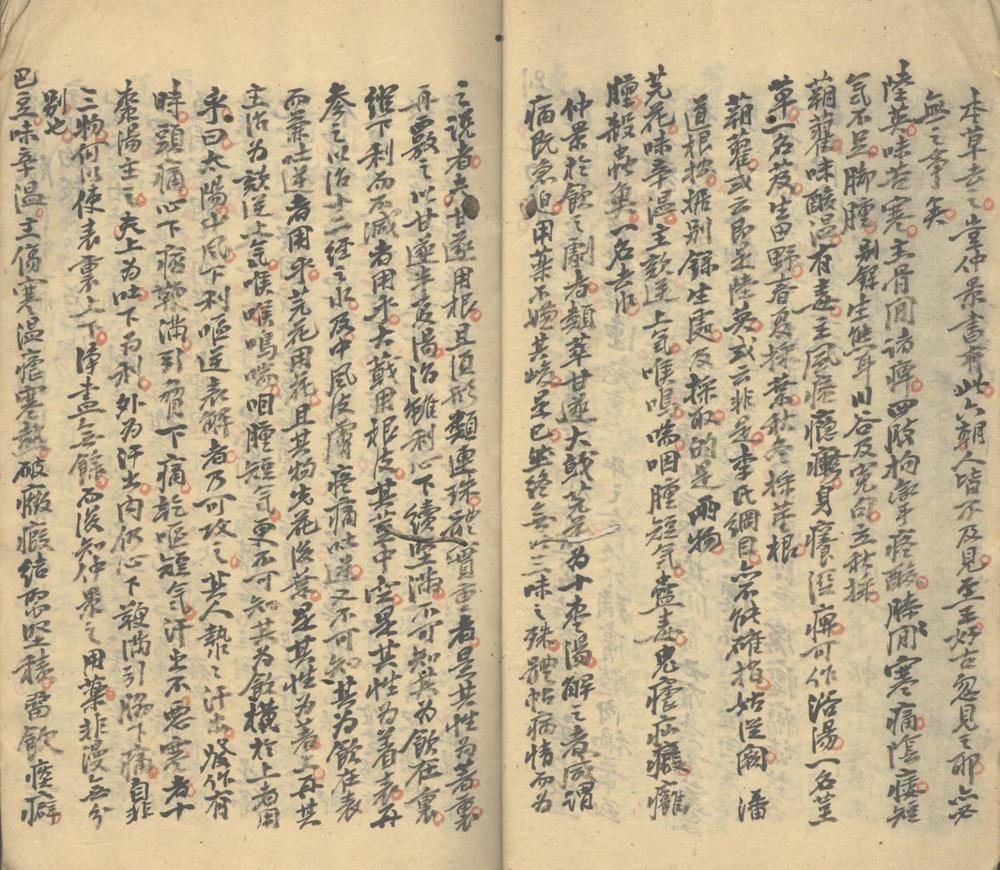 本草云云豈仲景書前此六朝人皆不及見至王好古忽見之耶必
無之事矣
陸英味苦寒主骨間諸痺四肢拘攣疼酸膝間寒痛陰痿短
氣不足脚腫別錄生熊耳川谷及冤句立秋採
蒴藋味酸溫有毒主風瘙癮疹身癢濕痺可作浴湯一名堇
草一名芨生田野春夏採葉秋冬採莖根
蒴藋或云即是陸英或云非是李氏綱目亦不能確指姑從闕 潘
道根按據別錄生處及採取的是兩物
芫花味辛溫主欬逆上氣喉鳴喘咽腫短氣蠱毒鬼瘧疝瘕癰
腫殺蟲魚一名去水
仲景於飲之劇者類萃甘遂大戟芫花為十棗湯解之者咸謂
病既急迫用藥不嫌其峻是已然終無以三味之殊體帖病情而為
之說者夫甘遂用根且須形類連珠體實重者是其性為著裏
再覈之以甘遂半夏湯治雖利心下續堅滿不可知其為飲在裏
經下利而不減者用乎大戟用根皮其莖中空是其性為著表再
參之以治十二經之水及中風皮膚疼痛吐逆又不可知其為飲在表
而兼吐逆者用乎芫花用花且其物先花後葉是其性為著上再其
主治為欬逆上氣喉喉鳴喘咽腫短氣更不可知其為飲橫於上者用
乎曰太陽中風下利嘔逆表解者乃可攻之其人漐漐汗出發作有
時頭痛心下痞鞕滿引脅下痛乾嘔短氣汗出不惡寒者十
棗湯主之夫上為吐下為利外為汗出內仍心下鞕滿引脇下痛自非
三物何以使表裏上下淨盡無餘而後知仲景之用藥非漫無分
別也
巴豆味辛溫主傷寒溫瘧寒熱破癥瘕結聚堅積留飲痰癖